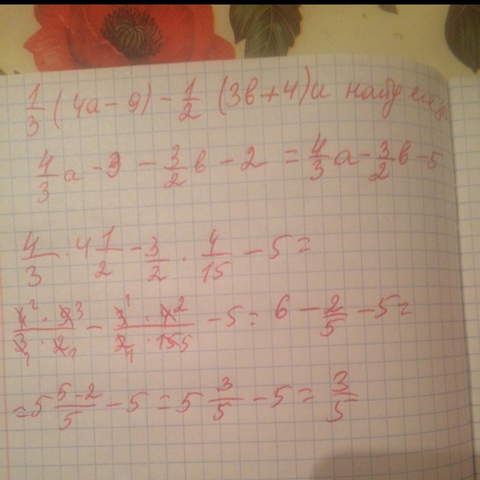 1/3 (4a - 9) - 1/2 (3b + 4) и найд
4/3 a - 3 - 3/2 b - 2 = 4/3 a - 3/2 b - 5
4/3 · 4 1/2 - 3/2 · 4/15 - 5 =
4² · 9³ / 3₁ · 2₁ - 3¹ · 4² / 2₁ · 15 5 - 5 = 6 - 2/5 - 5 =
= 5 5-2/5 - 5 = 5 3/5 - 5 = 3/5